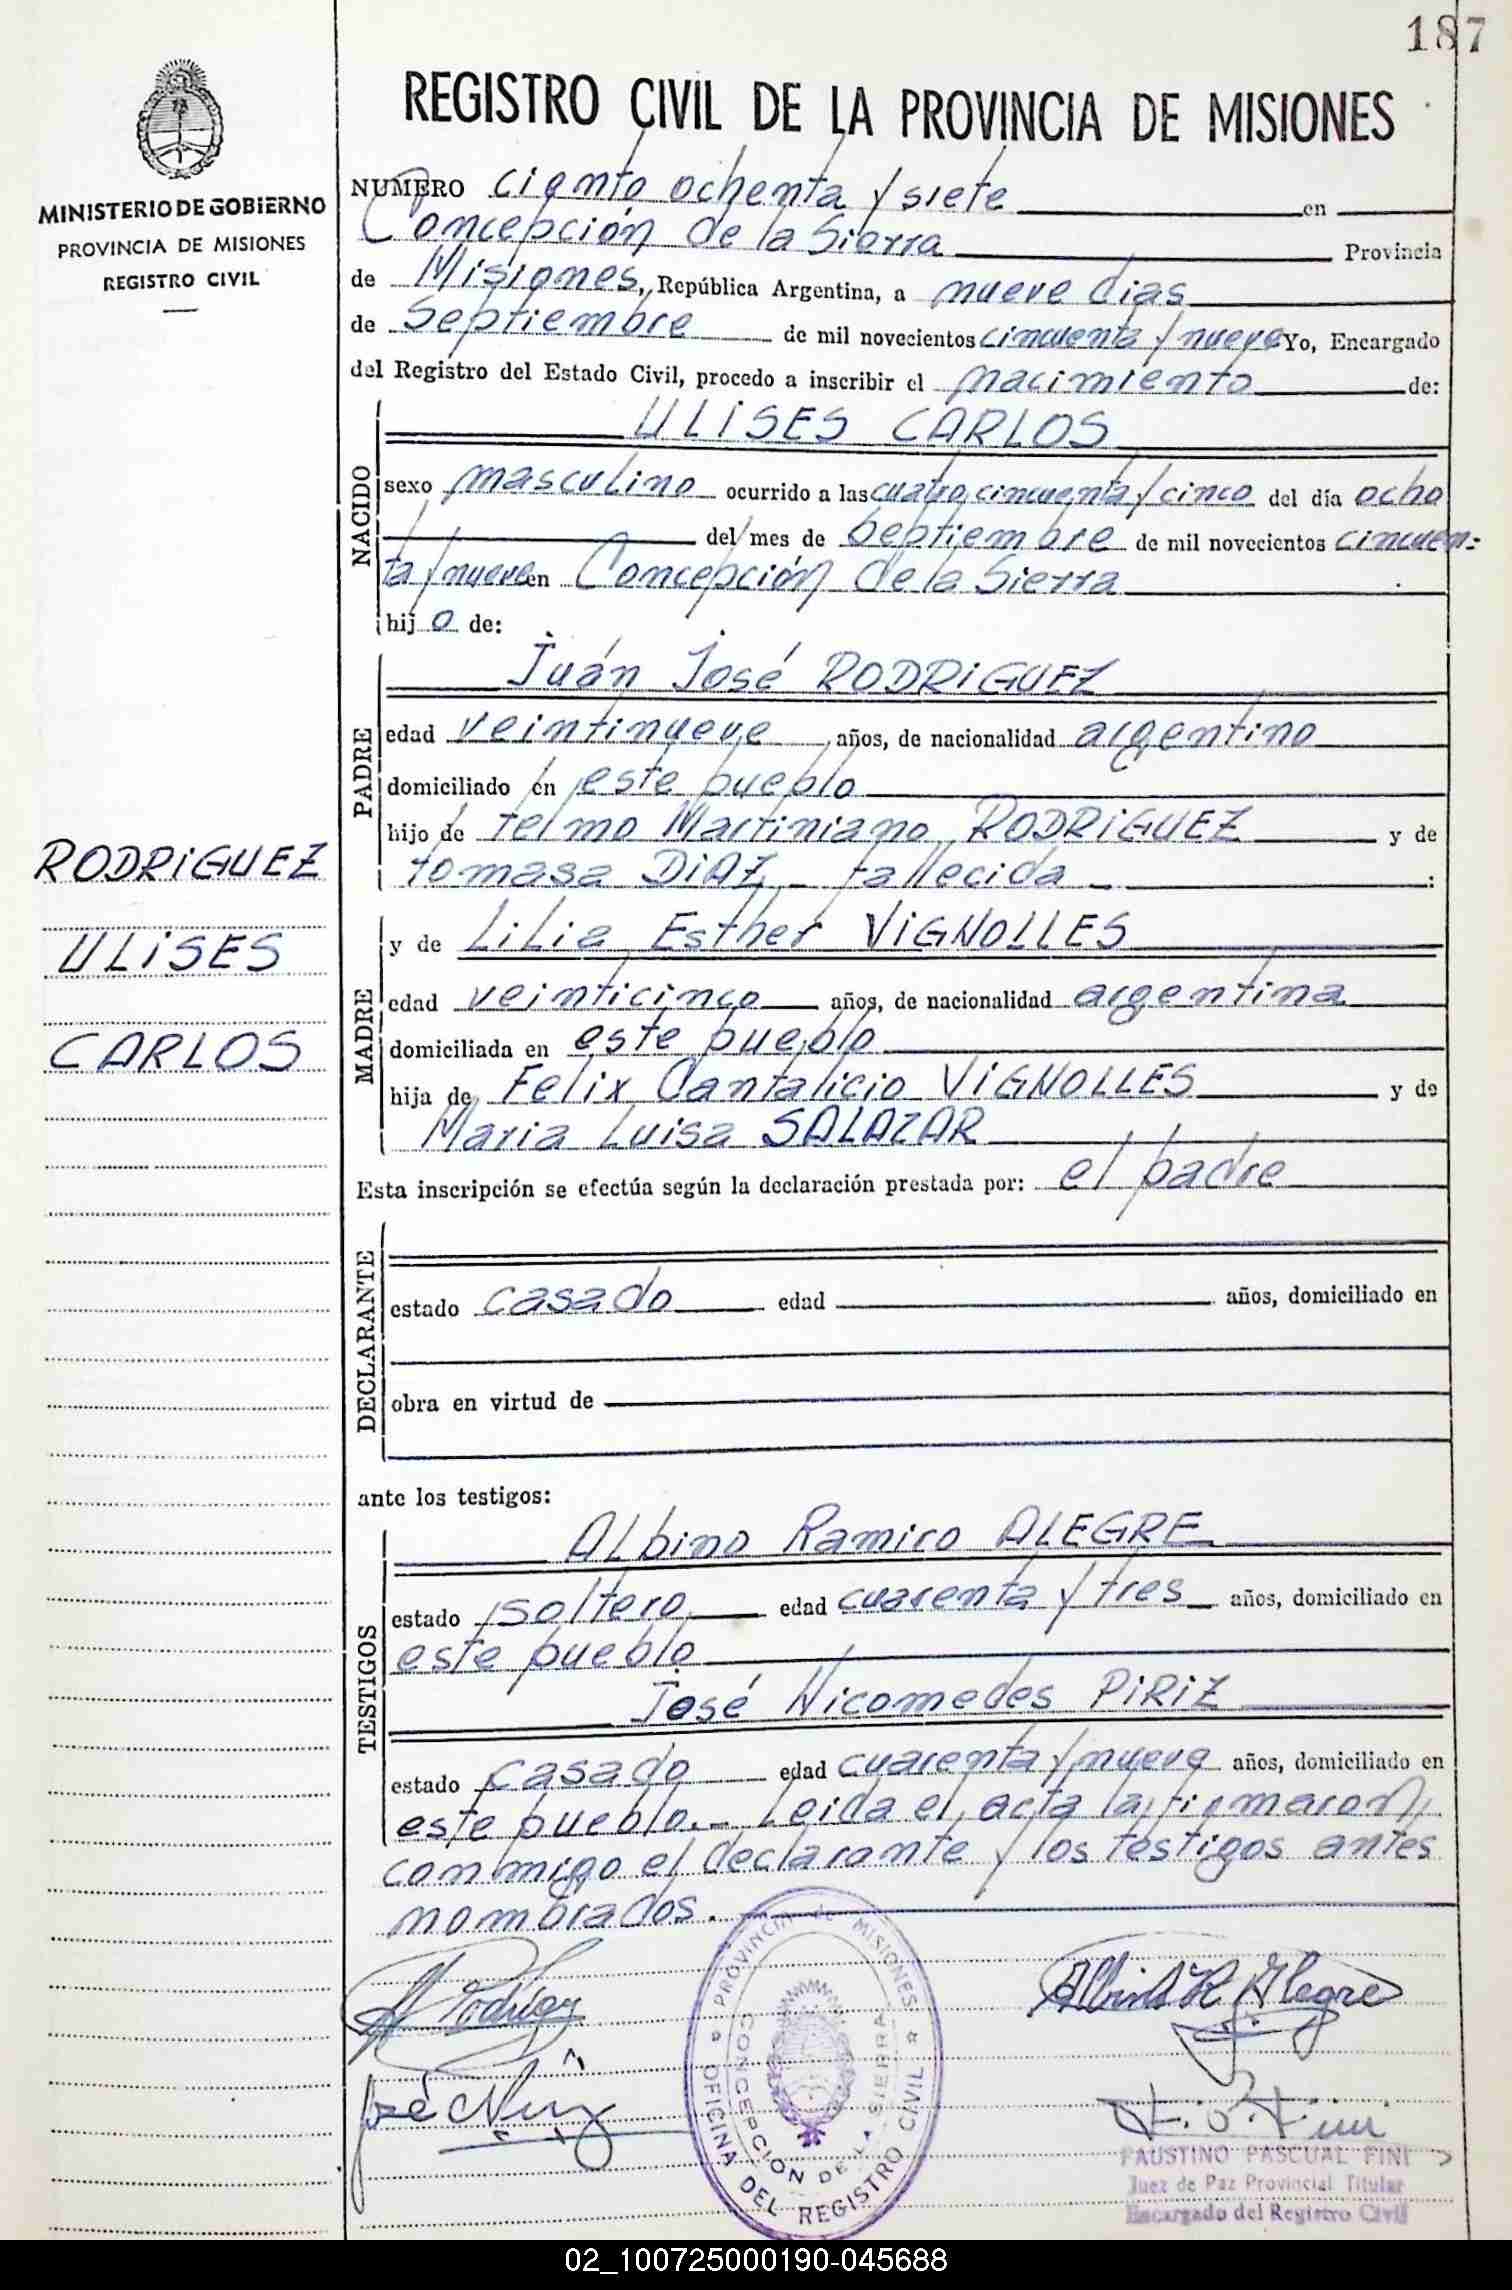 187
MINISTERIO DE GOBIERNO
PROVINCIA DE MISIONES
REGISTRO CIVIL
RODRIGUEZ
ULISES
CARLOS
REGISTRO CIVIL DE LA PROVINCIA DE MISIONES
NUMERO ciento ochenta y siete en
Concepción de la Sierra Provincia
de Misiones, República Argentina, a nueve dias
de Septiembre de mil novecientos cincuenta y nueve Yo, Encargado
del Registro del Estado Civil, procedo a inscribir el nacimiento de:
NACIDO
ULISES CARLOS
sexo masculino ocurrido a las cuatro, cincuenta y cinco del día ocho
del mes de Septiembre de mil novecientos cincuen-
ta y nueve en Concepción de la Sierra
hij o de:
PADRE
Juán José RODRIGUEZ
edad veintinueve años, de nacionalidad argentino
domiciliado en este pueblo
hijo de telmo Martiniano RODRIGUEZ y de
tomasa DIAZ - fallecida -
MADRE
y de Lilia Esther VIGNOLLES
edad veinticinco años, de nacionalidad argentina
domiciliada en este pueblo
hija de Felix Cantalicio VIGNOLLES y de
Maria Luisa SALAZAR
Esta inscripción se efectúa según la declaración prestada por: el padre
DECLARANTE
estado casado edad años, domiciliado en
obra en virtud de
ante los testigos:
TESTIGOS
Albino Ramiro ALEGRE
estado soltero edad cuarenta y tres años, domiciliado en
este pueblo
José Nicomedes PIRIZ
estado casado edad cuarenta y nueve años, domiciliado en
este pueblo.- Leida el acta la firmaron
conmigo el declarante y los testigos antes
nombrados.
Rodriguez
Albino R. Alegre
José N.
PROVINCIA de MISIONES
CONCEPCION DE LA SIERRA
OFICINA DEL REGISTRO CIVIL
FAUSTINO PASCUAL FINI
Juez de Paz Provincial Titular
Encargado del Registro Civil
02_100725000190-045688